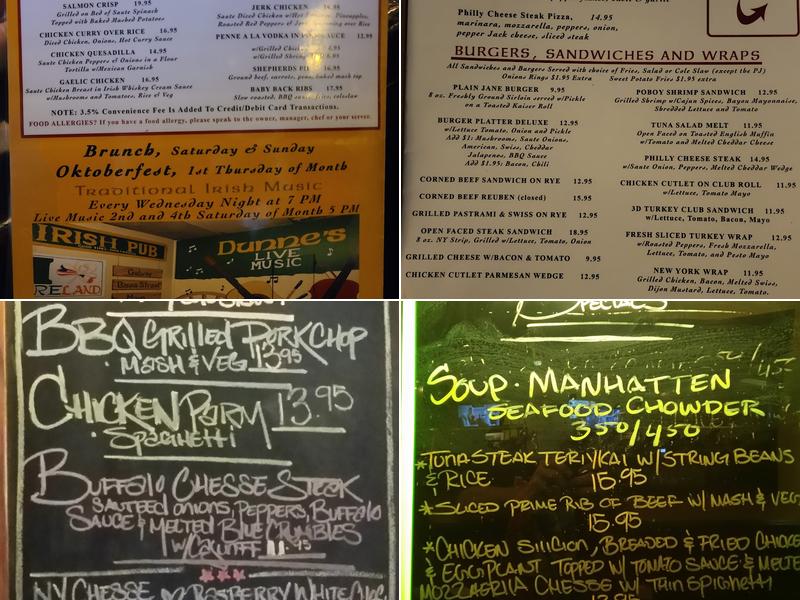 SALMON CRISP 19.95
Grilled on Bed of Saute Spinach
Topped with Baked Mashed Potatoes
CHICKEN CURRY OVER RICE 16.95
Diced Chicken, Onions, Hot Curry Sauce
CHICKEN QUESADILLA 14.95
Saute Chicken Peppers & Onions in a Flour
Tortilla w/Mexican Garnish
GAELIC CHICKEN 16.95
Saute Chicken Breast in Irish Whiskey Cream Sauce
w/Mushrooms and Tomatoes, Rice & Veg
JERK CHICKEN
Saute Diced Chicken w/Hot Pineapples,
Roasted Red Peppers & over Rice
PENNE A LA VODKA IN SAUCE 12.95
w/Grilled
w/Grilled
SHEPHERDS 16.95
Ground beef, carrots, peas, baked mash top
BABY BACK RIBS 17.95
Slow roasted, BBQ coleslaw
NOTE: 3.5% Convenience Fee Is Added To Credit/Debit Card Transactions.
FOOD ALLERGIES? If you have a food allergy, please speak to the owner, manager, chef or your server.
Brunch, Saturday & Sunday
Oktoberfest, 1st Thursday of Month
Traditional Irish Music
Every Wednesday Night at 7 PM
Live Music 2nd and 4th Saturday of Month 5 PM
IRISH PUB
Dunne's
LIVE
MUSIC
Galway
RELAND
Philly Cheese Steak Pizza, 14.95
marinara, mozzarella, peppers, onion,
pepper Jack cheese, sliced steak
BURGERS, SANDWICHES AND WRAPS
All Sandwiches and Burgers Served with choice of Fries, Salad or Cole Slaw (except the PJ)
Onions Rings $1.95 Extra Sweet Potato Fries $1.95 extra
PLAIN JANE BURGER 9.95
8 oz. Freshly Ground Sirloin served w/Pickle
on a Toasted Kaiser Roll
BURGER PLATTER DELUXE 12.95
w/Lettuce Tomato, Onion and Pickle
Add $1: Mushrooms, Saute Onions,
American, Swiss, Cheddar
Jalapenos, BBQ Sauce
Add $1.95: Bacon, Chili
CORNED BEEF SANDWICH ON RYE 12.95
CORNED BEEF REUBEN (closed) 15.95
GRILLED PASTRAMI & SWISS ON RYE 12.95
OPEN FACED STEAK SANDWICH 18.95
8 oz. NY Strip, Grilled w/Lettuce, Tomato, Onion
GRILLED CHEESE W/BACON & TOMATO 9.95
CHICKEN CUTLET PARMESAN WEDGE 12.95
POBOY SHRIMP SANDWICH 12.95
Grilled Shrimp w/Cajun Spices, Bayou Mayonnaise,
Shredded Lettuce and Tomato
TUNA SALAD MELT 11.95
Open Faced on Toasted English Muffin
w/Tomato and Melted Cheddar Cheese
PHILLY CHEESE STEAK 14.95
w/Saute Onion, Peppers, Melted Cheddar Wedge
CHICKEN CUTLET ON CLUB ROLL 11.95
w/Lettuce, Tomato Mayo
3D TURKEY CLUB SANDWICH 11.95
w/Lettuce, Tomato, Bacon, Mayo
FRESH SLICED TURKEY WRAP 12.95
w/Roasted Peppers, Fresh Mozzarella,
Lettuce, Tomato, and Pesto Mayo
NEW YORK WRAP 11.95
Grilled Chicken, Bacon, Melted Swiss,
Dijon Mustard, Lettuce, Tomato.
BBQ Grilled Pork Chop
· MASH & VEG 13.95
CHICKEN Parm 13.95
· Spaghetti
Buffalo Chesse Steak
Sauteed onions, Peppers, Buffalo
Sauce & Melted Blue Crumbles
NY CHESSE or RASPBERRY WHITE
SPECIALS
SOUP · MANHATTEN
SEAFOOD CHOWDER
350/450
*TUNA STEAK TERIYKAI W/ STRING BEANS
& RICE 15.95
*SLICED PRIME RIB OF BEEF W/ MASH & VEG
15.95
*CHICKEN SILICION, BREADED & FRIED CHICKE
& EGGPLANT TOPPED W/ TOMATO SAUCE & MELTE
MOZZAERLLA CHESSE W/ THIN SPIGHETTI